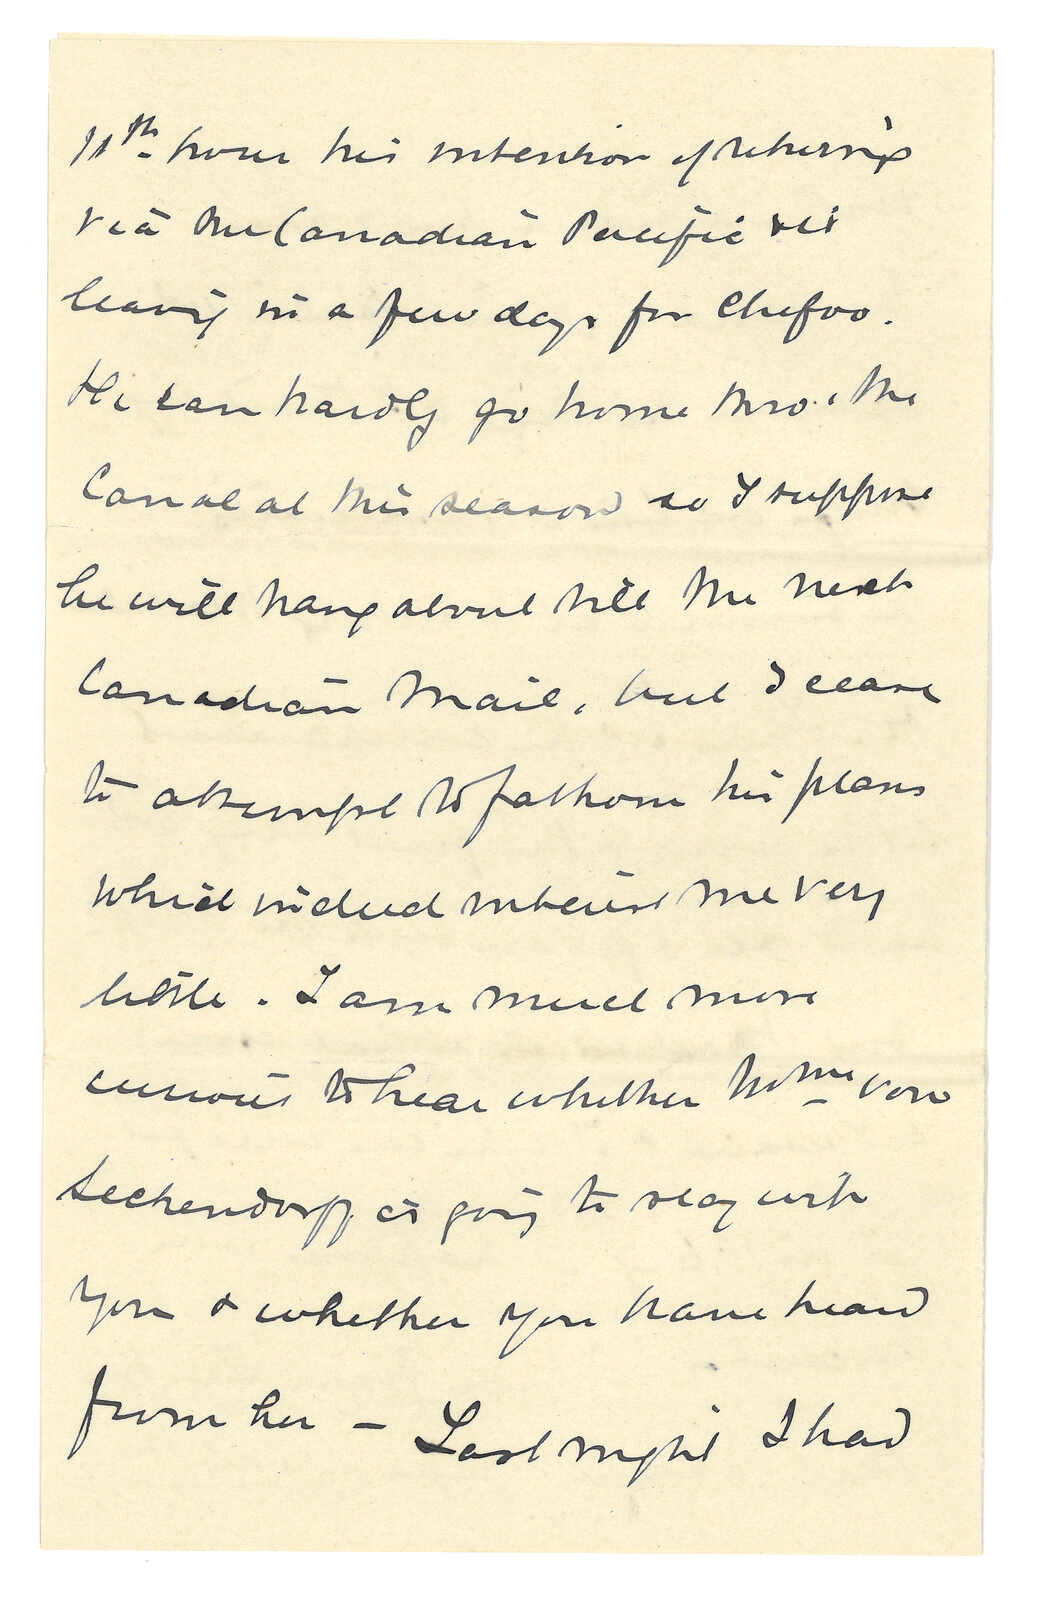 11th hour his intention of returning
via the Canadian Pacific &
leaving in a few days for Chefoo.
He can hardly go home thro' the
Canal at this season so I suppose
he will hang about till the next
Canadian Mail, but I cease
to attempt to fathom his plans
which indeed interest me very
little. I am much more
curious to hear whether Mme von
Seckendorff is going to stay with
you & whether you have heard
from her – Last night I had